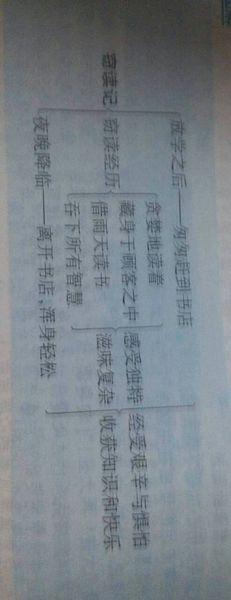 放学之后——匆匆赶到书店
窃读记
窃读经历
贪婪地读着
藏身于顾客之中
借雨天读书
吞下所有智慧
感受独特
滋味复杂
夜晚降临——离开书店,浑身轻松
经受艰辛与惧怕
收获知识和快乐